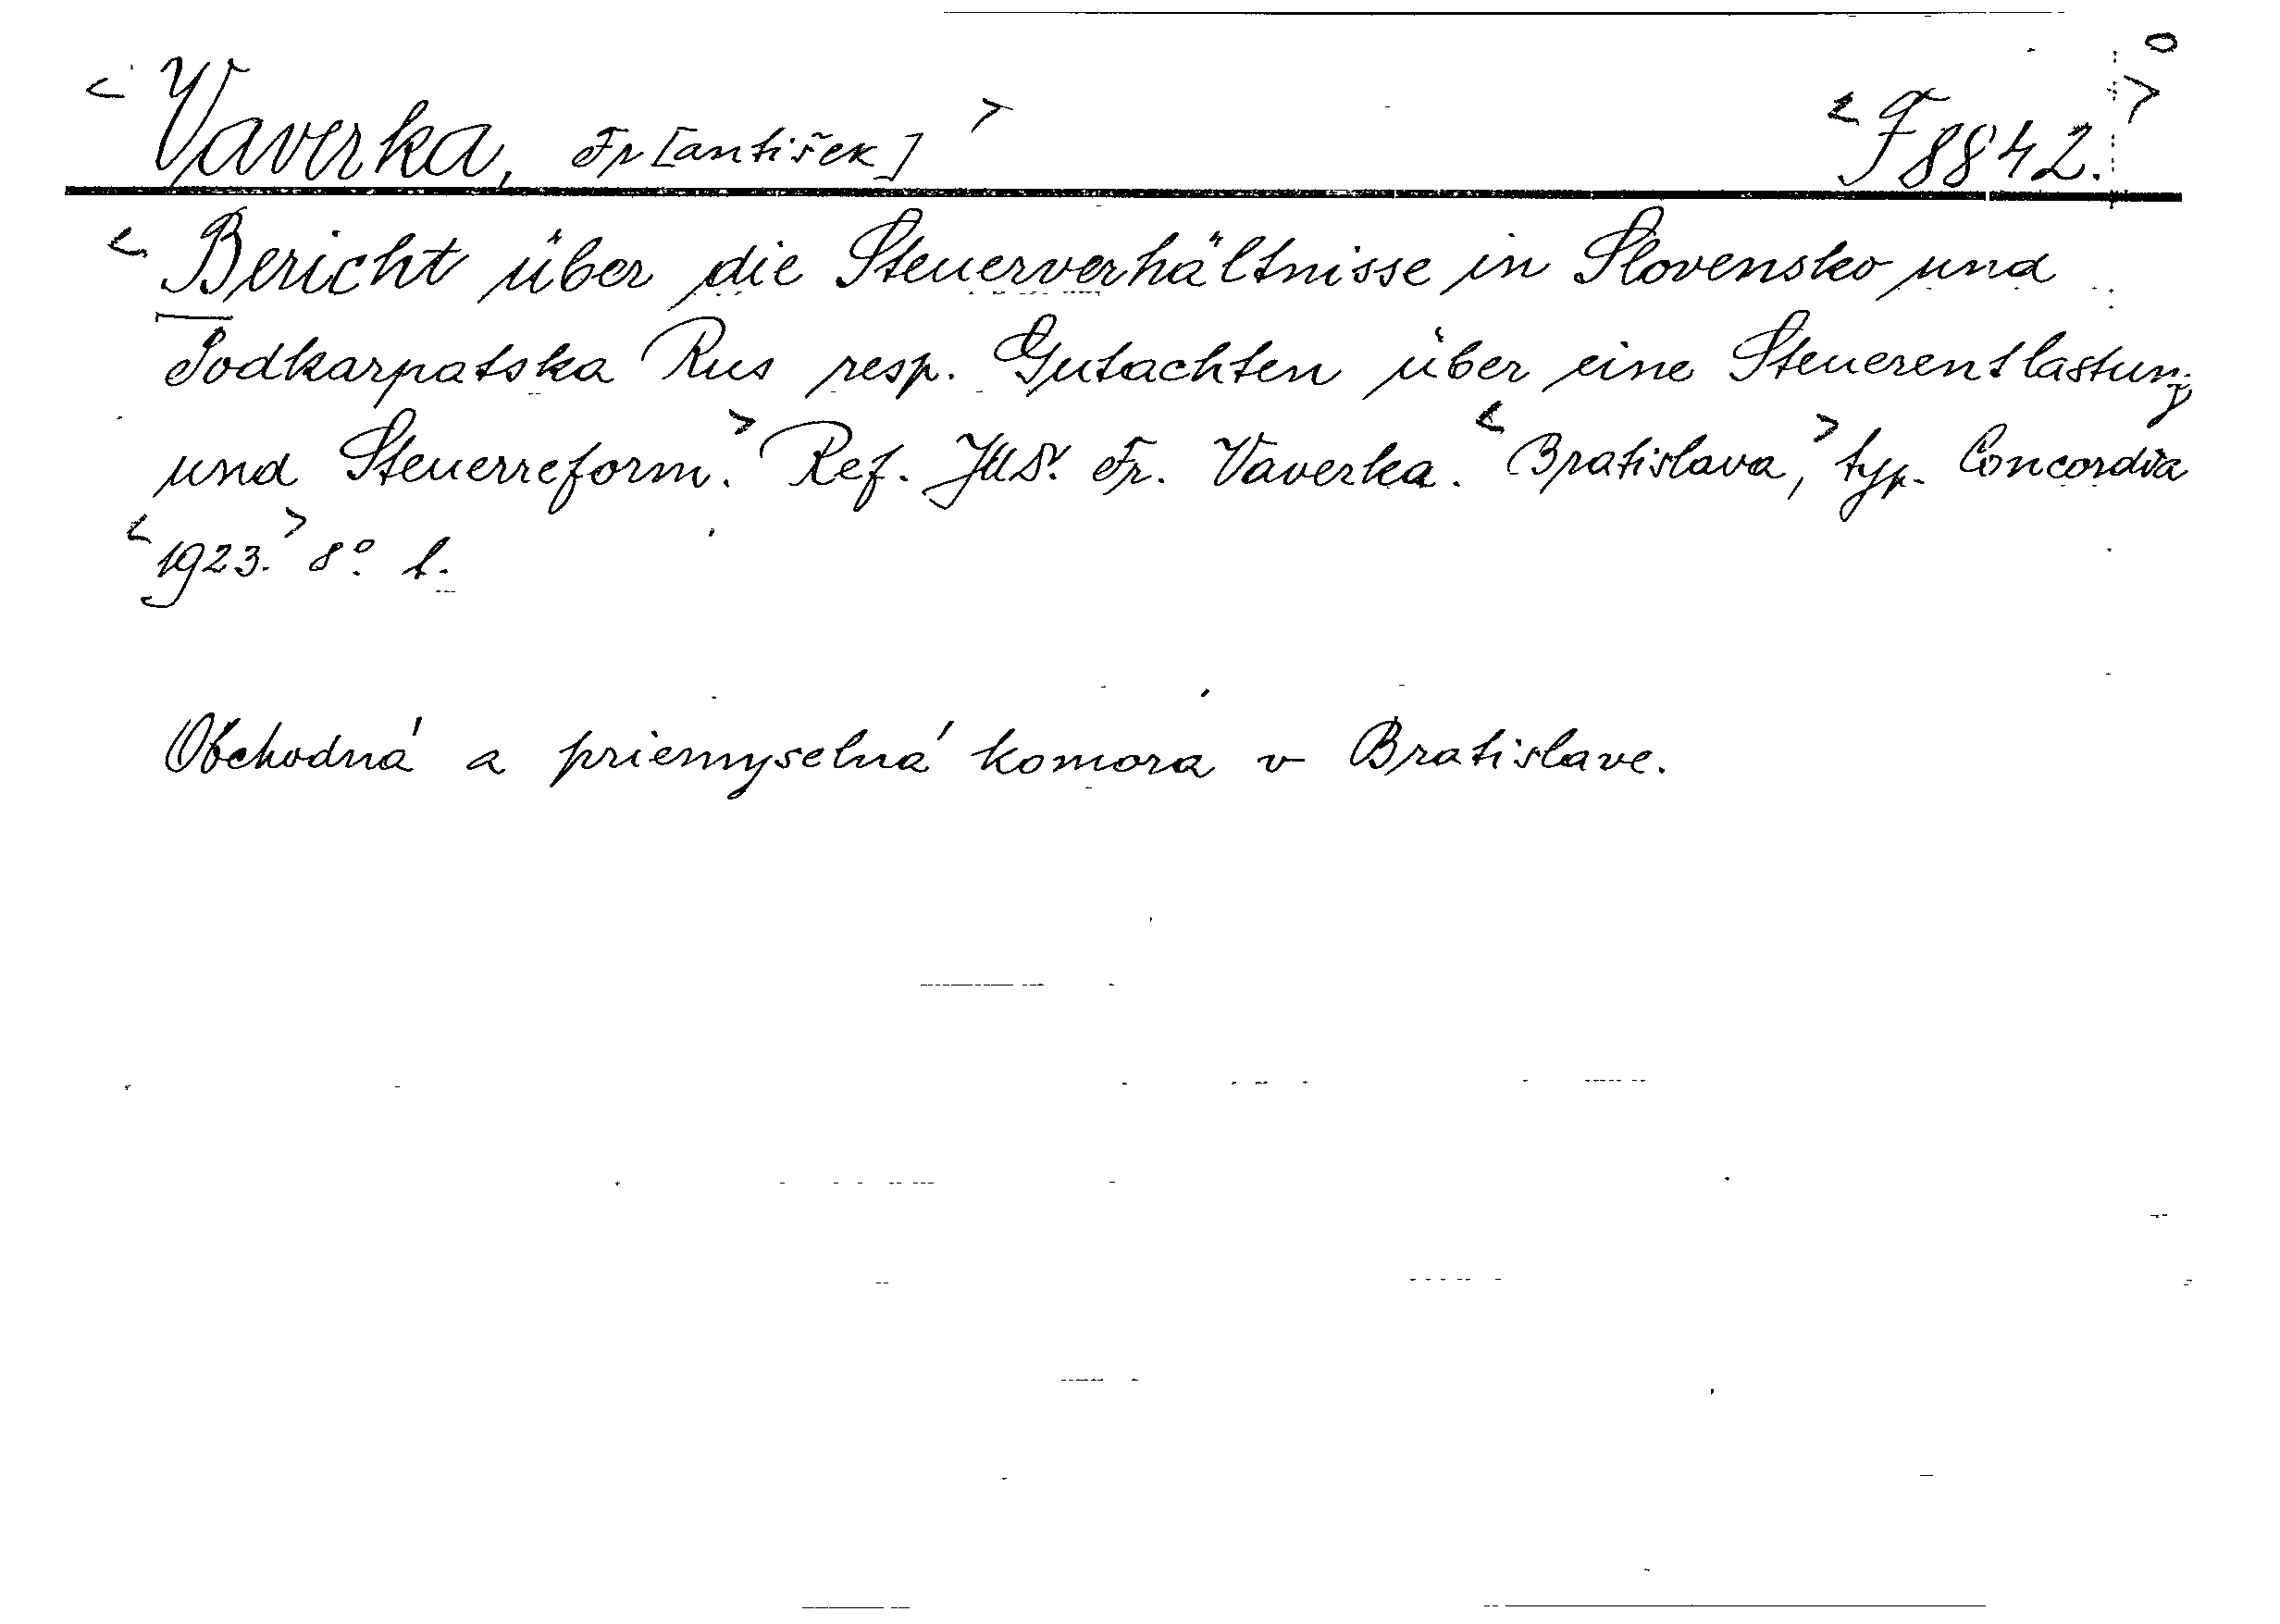 < Vaverka, Fr[antišek] > < F 8842. > 0
< Bericht über die Steuerverhältnisse in Slovensko und
Podkarpatska Rus resp. Gutachten über eine Steuerentlastung
und Steuerreform. > Ref. JUDr. Fr. Vaverka. < Bratislava, > typ. Concordia
< 1923. > 8°. l.
Obchodná a priemyselná komora v Bratislave.